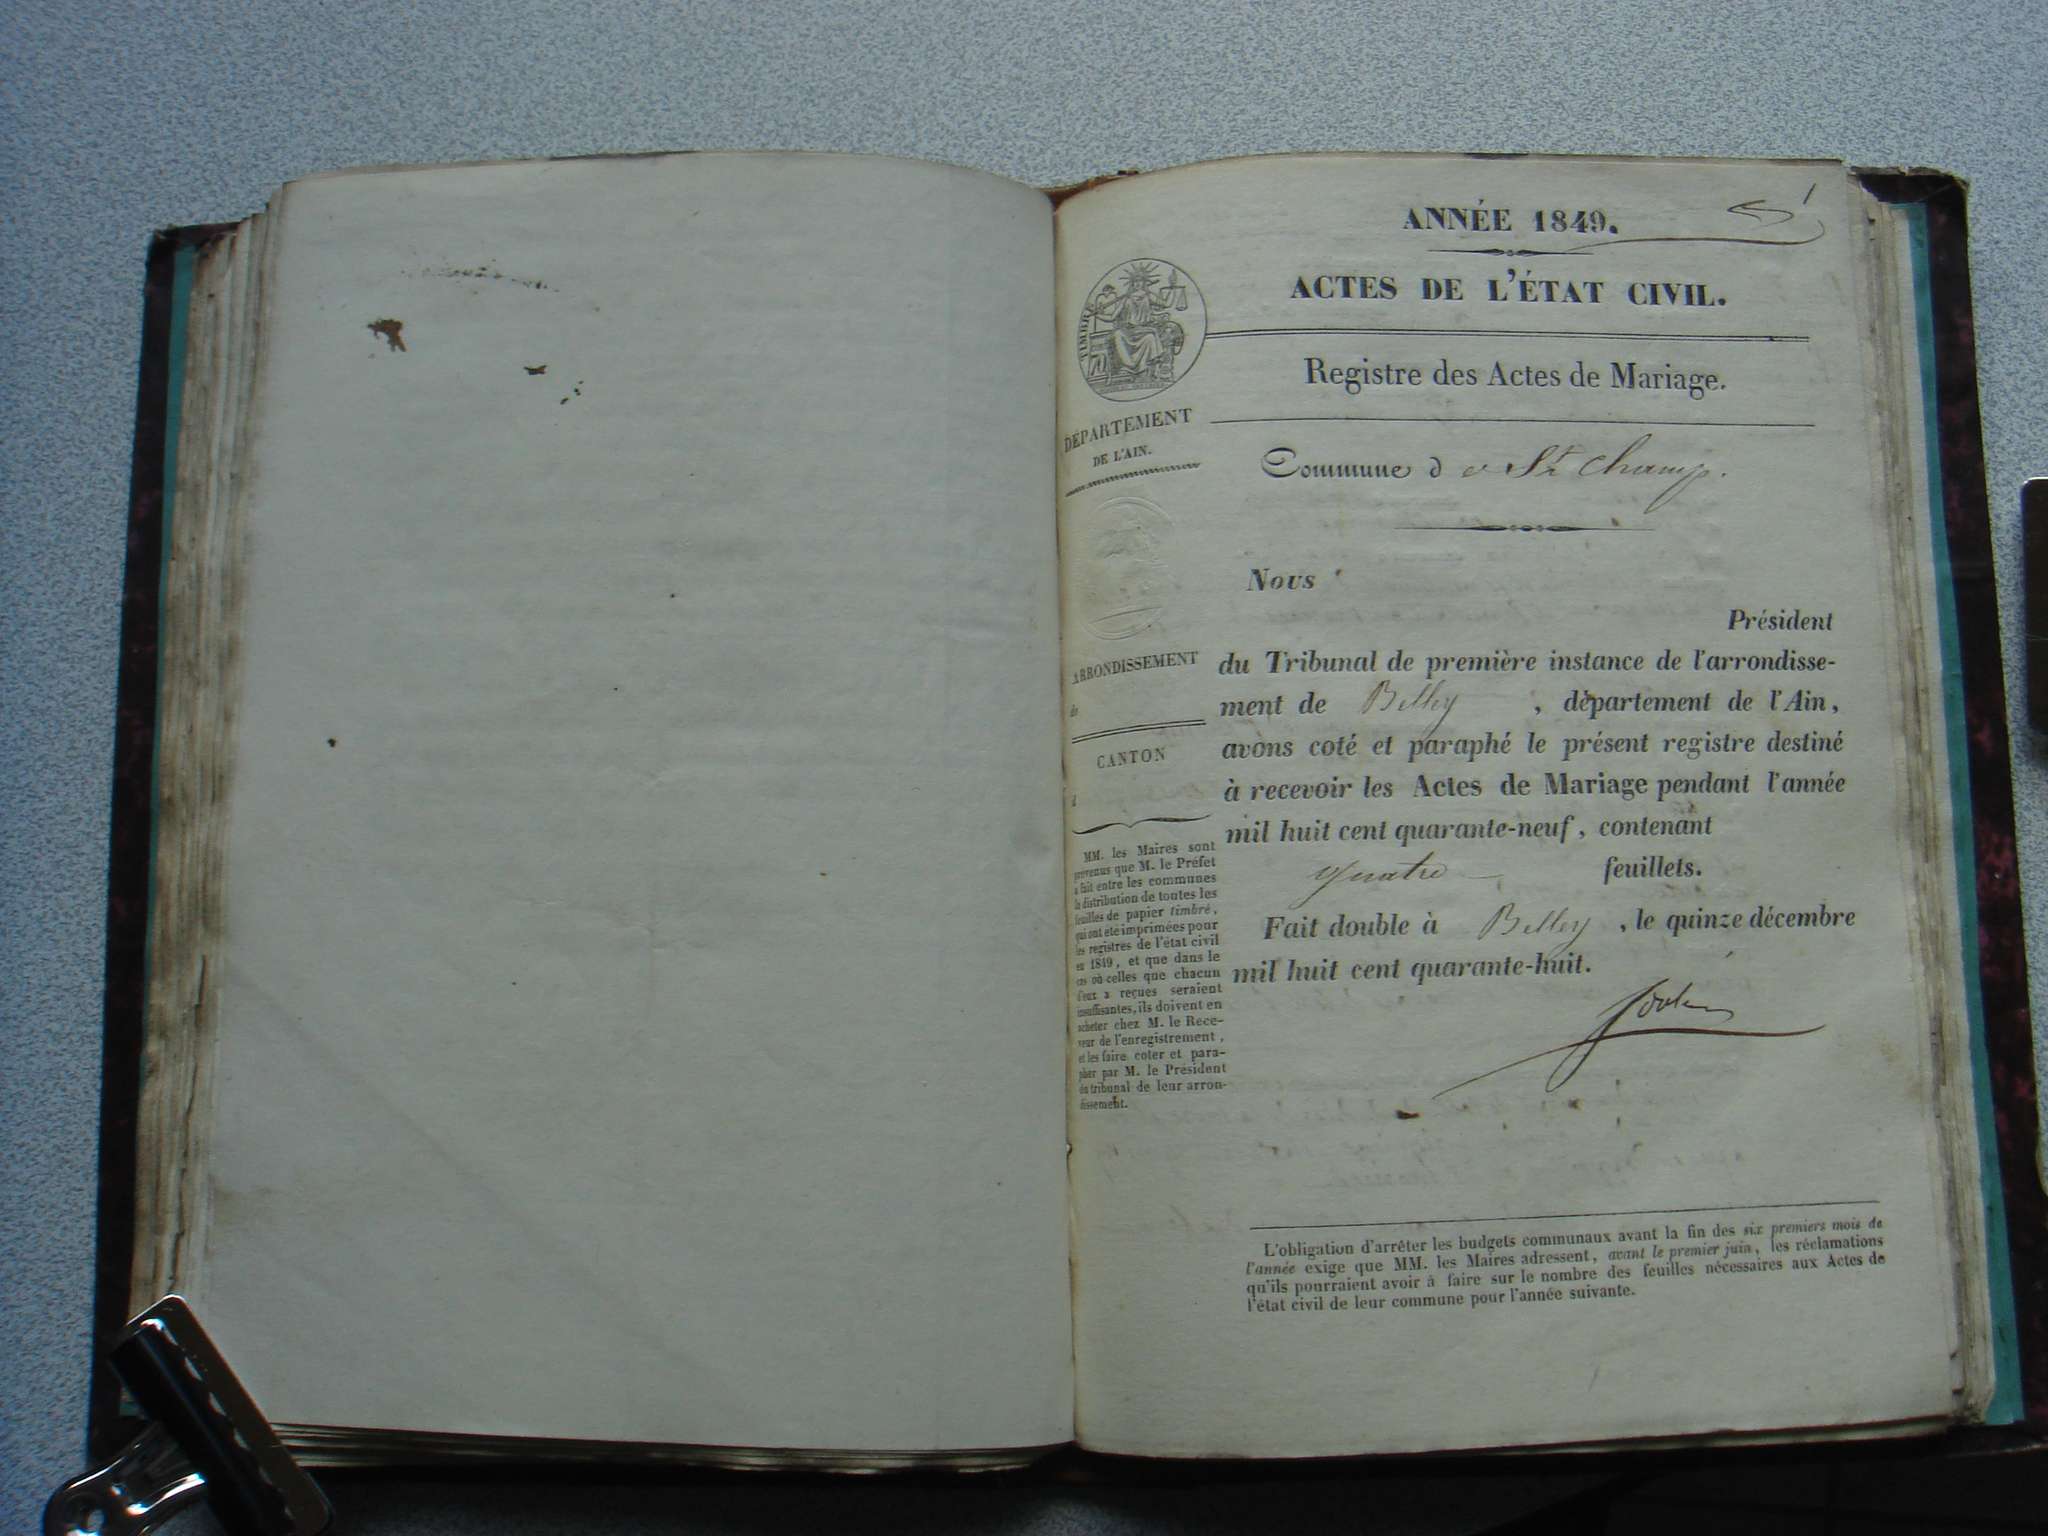 ANNÉE 1849.
ACTES DE L'ÉTAT CIVIL.
TIMBRE
Registre des Actes de Mariage.
DÉPARTEMENT
DE L'AIN.
Commune d e St Champ.
Nous
Président
du Tribunal de première instance de l'arrondisse-
ment de Belley , département de l'Ain,
avons coté et paraphé le présent registre destiné
à recevoir les Actes de Mariage pendant l'année
mil huit cent quarante-neuf, contenant
quatre feuillets.
Fait double à Belley , le quinze décembre
mil huit cent quarante-huit.
ARRONDISSEMENT
de
CANTON
d
MM. les Maires sont
prévenus que M. le Préfet
a fait entre les communes
la distribution de toutes les
feuilles de papier timbré,
qui ont été imprimées pour
les registres de l'état civil
en 1849, et que dans le
cas où celles que chacun
d'eux a reçues seraient
insuffisantes, ils doivent en
acheter chez M. le Rece-
veur de l'enregistrement,
et les faire coter et para-
pher par M. le Président
du tribunal de leur arron-
dissement.
L'obligation d'arrêter les budgets communaux avant la fin des six premiers mois de
l'année exige que MM. les Maires adressent, avant le premier juin, les réclamations
qu'ils pourraient avoir à faire sur le nombre des feuilles nécessaires aux Actes de
l'état civil de leur commune pour l'année suivante.